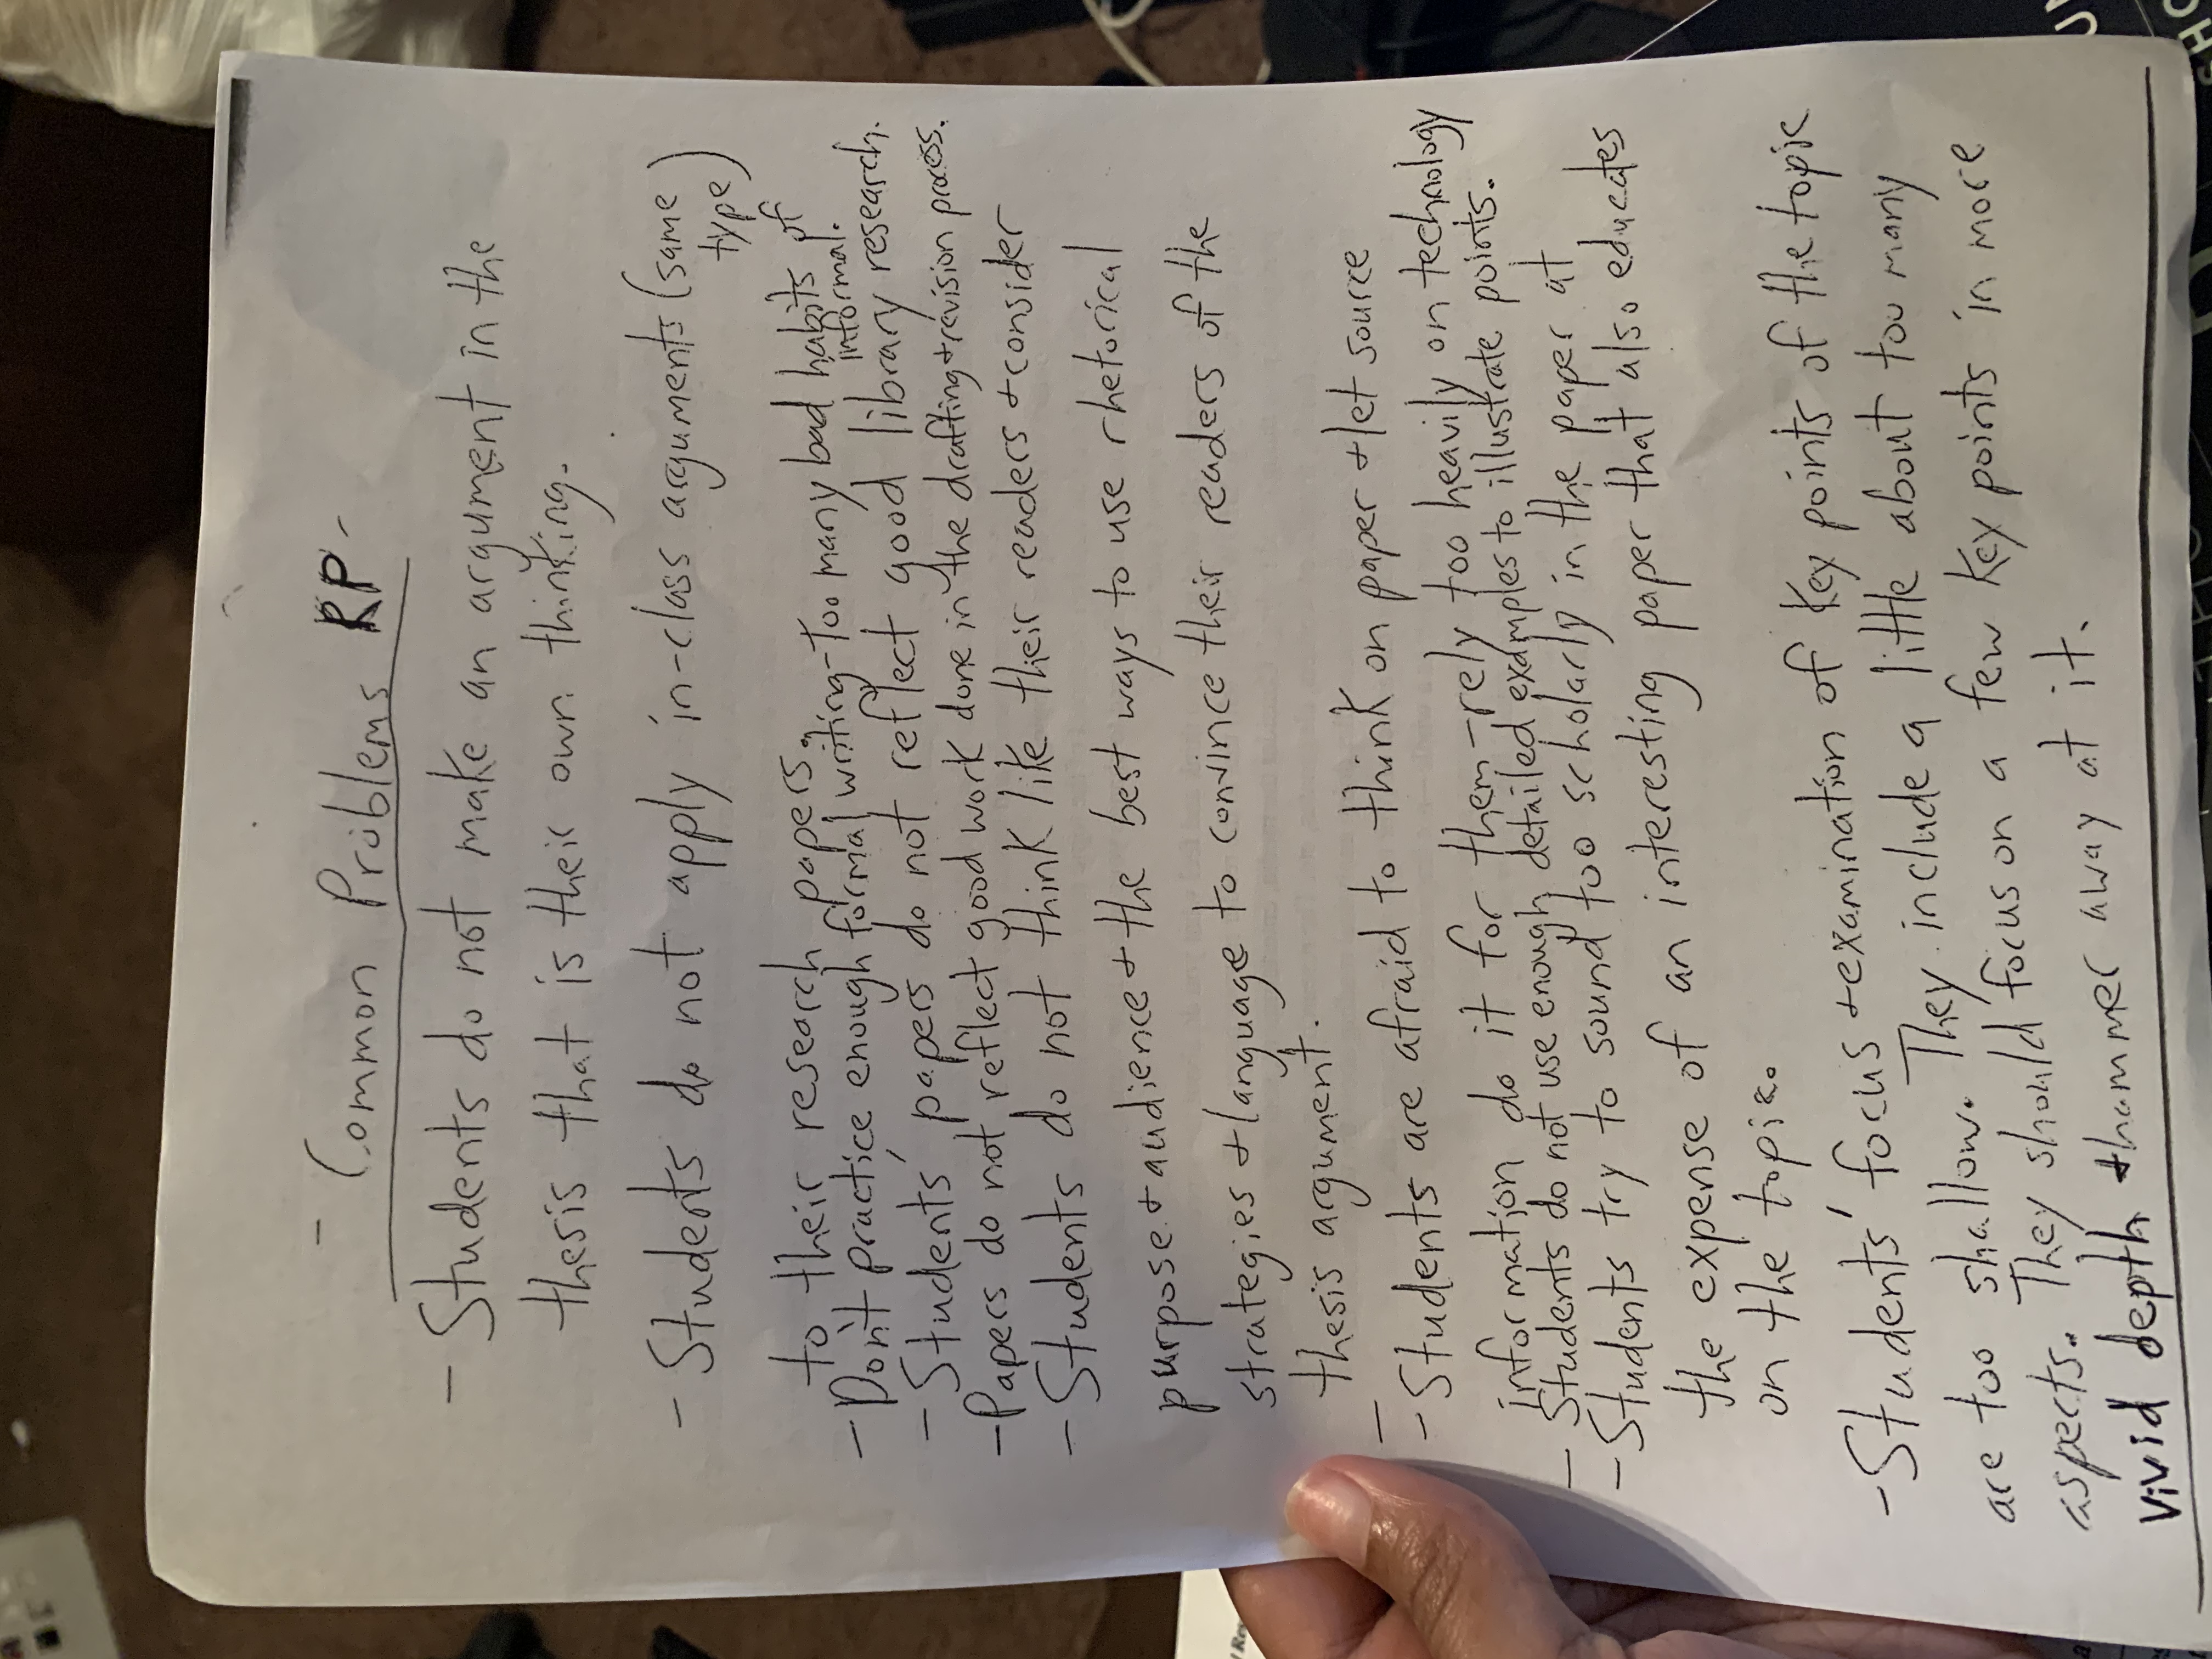 - Common Problems RP -
- Students do not make an argument in the
thesis that is their own thinking.
- Students do not apply in-class arguments (same
type)
to their research papers.
- Don't practice enough formal writing - too many bad habits of
informal.
- Students' papers do not reflect good library research.
- Papers do not reflect good work done in the drafting + revision process.
- Students do not think like their readers + consider
purpose + audience + the best ways to use rhetorical
strategies + language to convince their readers of the
thesis argument.
- Students are afraid to think on paper + let source
information do it for them - rely too heavily on technology
- Students do not use enough detailed examples to illustrate points.
- Students try to sound too scholarly in the paper at
the expense of an interesting paper that also educates
on the topic.
- Students' focus + examination of key points of the topic
are too shallow. They include a little about too many
aspects. They should focus on a few key points in more
vivid depth + hammer away at it.